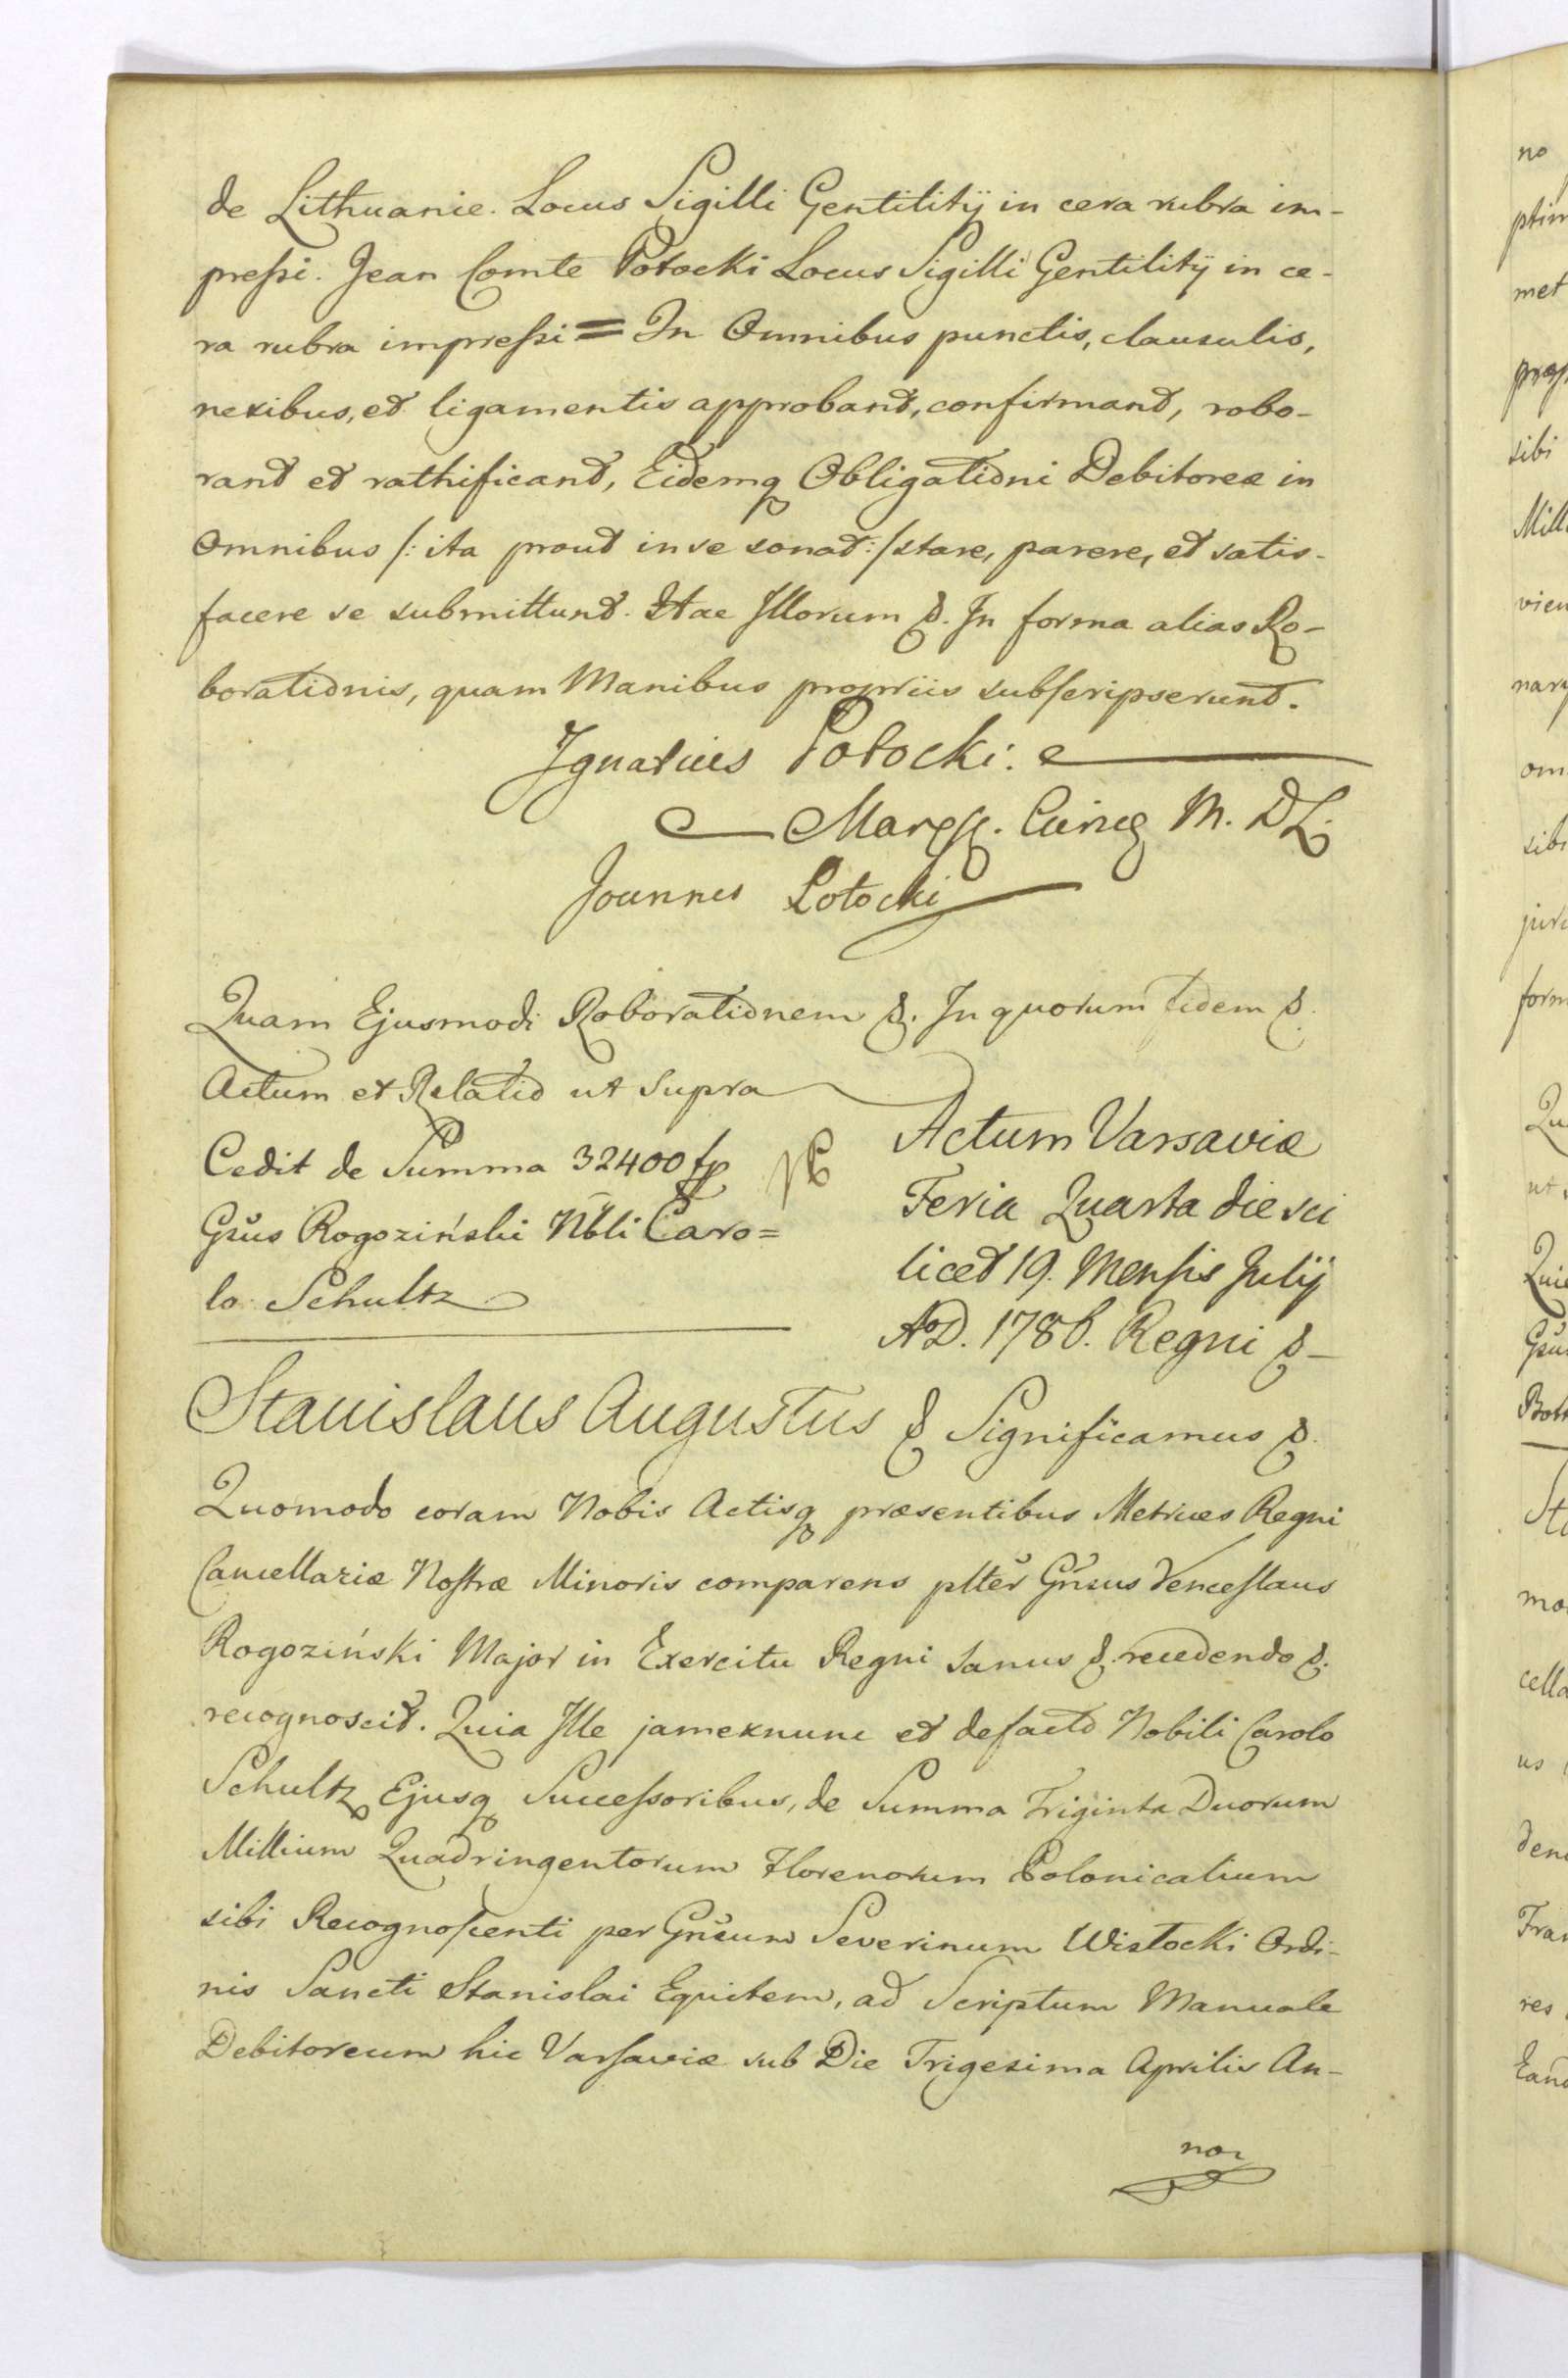 de Lithuanie. Locus Sigilli Gentilitÿ in cera rubra im-
preſsi. Jean Comte Potocki Locus Sigilli Gentilitÿ in ce-
ra rubra impreſsi = In Omnibus punctis, clausulis,
nexibus, et ligamentis approbant, confirmant, robo-
rant et rathificant, Eidemq Obligationi Debitoreæ in
Omnibus /: ita prout in se sonat :/ stare, parere, et satis-
facere se submittunt. Stae Illorum &. In forma alias Ro-
borationis, quam Manibus propriis subſcripserunt.
Ignatius Potocki.
Mareſſ. Curiæ M. D L.
Joannes Potocki
Quam Ejusmodi Roborationem &. In quorum fidem &.
Actum et Relatio ut Supra
Cedit de Summa 32400 fp
Gsus Rogoziński Nbli Caro=
lo Schultz
Actum Varsaviæ
Feria Quarta die sci
licet 19. Menſis Julÿ
AoD. 1786. Regni &-
Stanislaus Augustus & Significamus &.
Quomodo coram Nobis Actisq præsentibus Metrices Regni
Cancellariæ Noſtræ Minoris comparens plter Gnsus Venceſlaus
Rogoziński Major in Exercitu Regni Sanus &. recedendo &.
recognoscit. Quia Ille jamexnunc et defacto Nobili Carolo
Schultz Ejusq Succeſsoribus, de Summa Triginta Duorum
Millium Quadringentorum Florenorum Polonicalium
sibi Recognoſcenti per Gnsum Severinum Wisłocki Ordi-
nis Sancti Stanislai Equitem, ad Scriptum Manuale
Debitoreum hic Varſaviæ sub Die Trigesima Aprilis An-
no